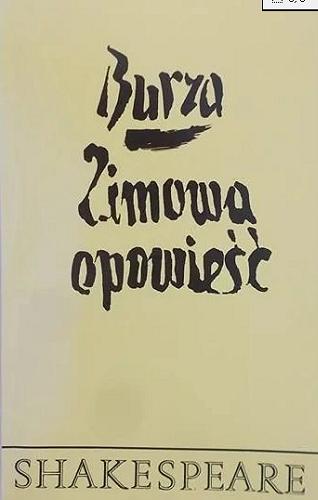 Burza
Zimowa
opowieść
SHAKESPEARE